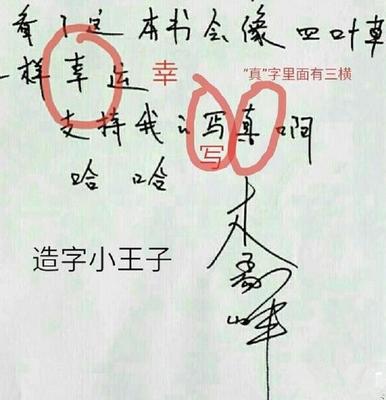 看了这本书会像四叶草
一样幸运 幸 "真"字里面有三横
支持我的写真啊
写
哈哈
造字小王子